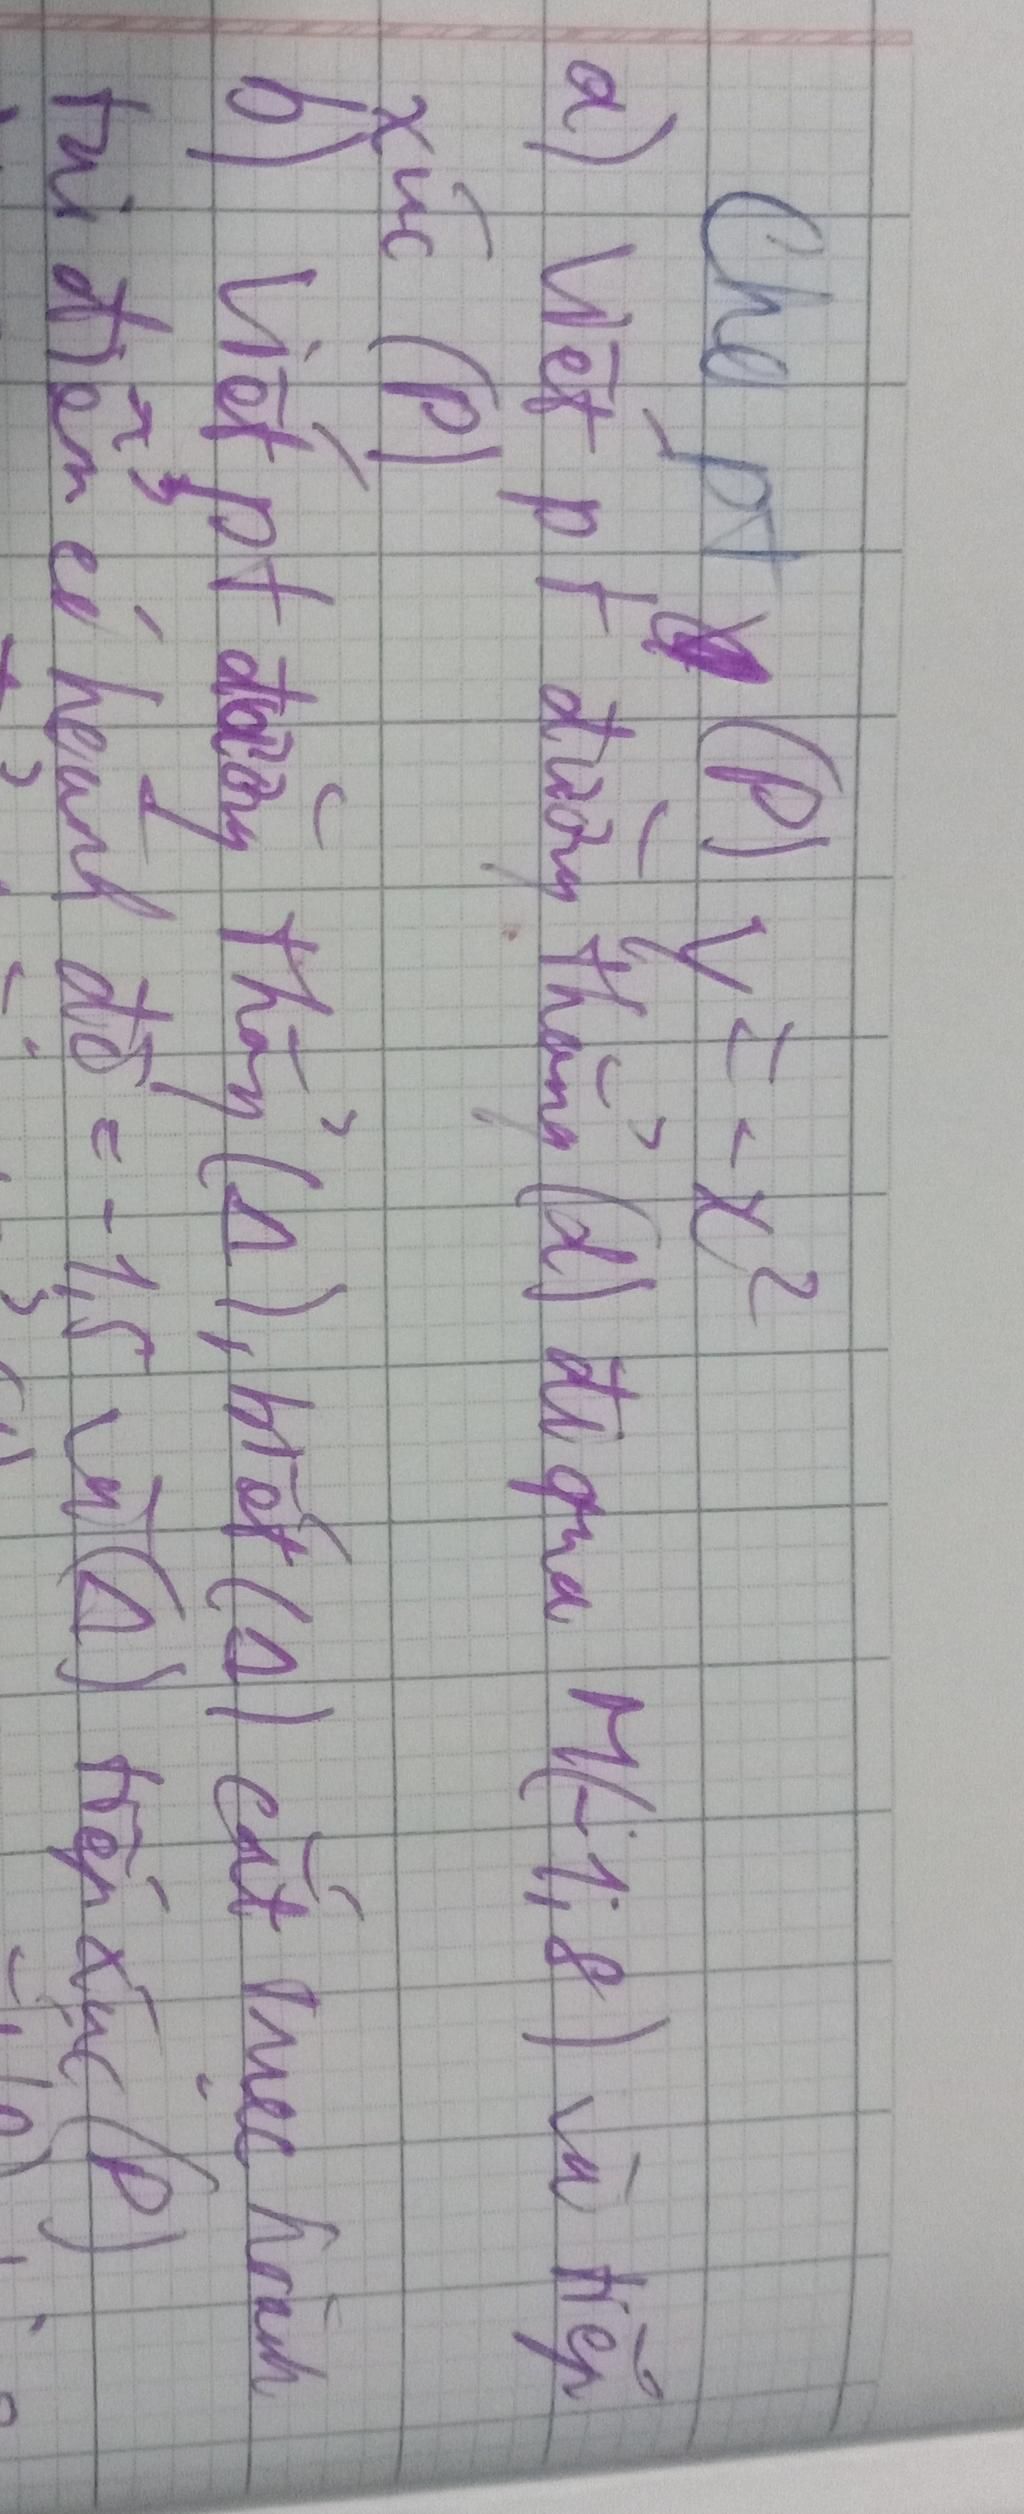 Cho pt (P) y = -x²
a) Viết pt đường thẳng (d) đi qua M(-1; 8) và tiếp
xúc (P)
b) Viết pt đường thẳng (Δ), biết (Δ) cắt trục hoành
tại điểm có hoành độ = -1,5 và (Δ) tiếp xúc (P)